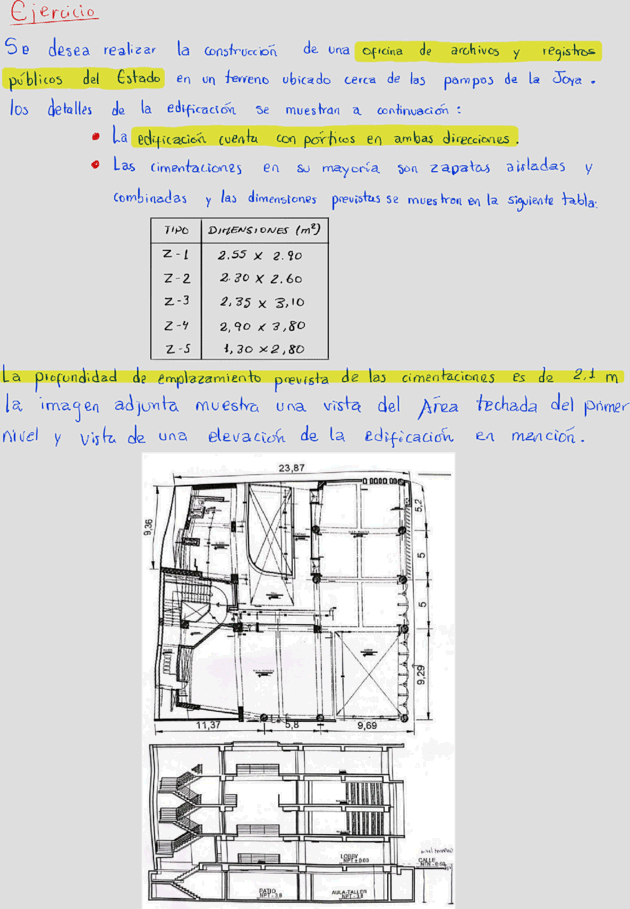 Ejercicio
Se desea realizar la construcción de una oficina de archivos y registros
públicos del Estado en un terreno ubicado cerca de las pampas de la Joya.
los detalles de la edificación se muestran a continuación:
• La edificación cuenta con pórticos en ambas direcciones.
• Las cimentaciones en su mayoría son zapatas aisladas y
combinadas y las dimensiones previstas se muestran en la siguiente tabla:
TIPO DIMENSIONES (m²)
Z-1 2.55 x 2.90
Z-2 2.30 x 2.60
Z-3 2,35 x 3,10
Z-4 2,90 x 3,80
Z-5 1,30 x 2,80
La profundidad de emplazamiento prevista de las cimentaciones es de 2.1 m
la imagen adjunta muestra una vista del Área techada del primer
nivel y vista de una elevación de la edificación en mención.
23,87
9,36
5,2
5
5
9,29
11,37
5,8
9,69
LOBBY
NPT ±0.00
CALLE
PATIO
AULA-TALLER